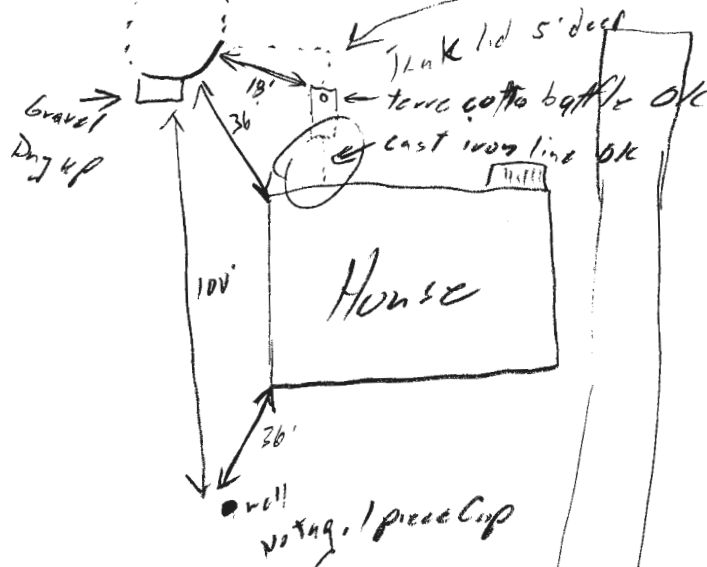 Tank lid 5' deep
18'
terra cotta baffle OK
Gravel
Dug up
36
cast iron line OK
100'
House
36'
well
No tag. 1 piece Cap